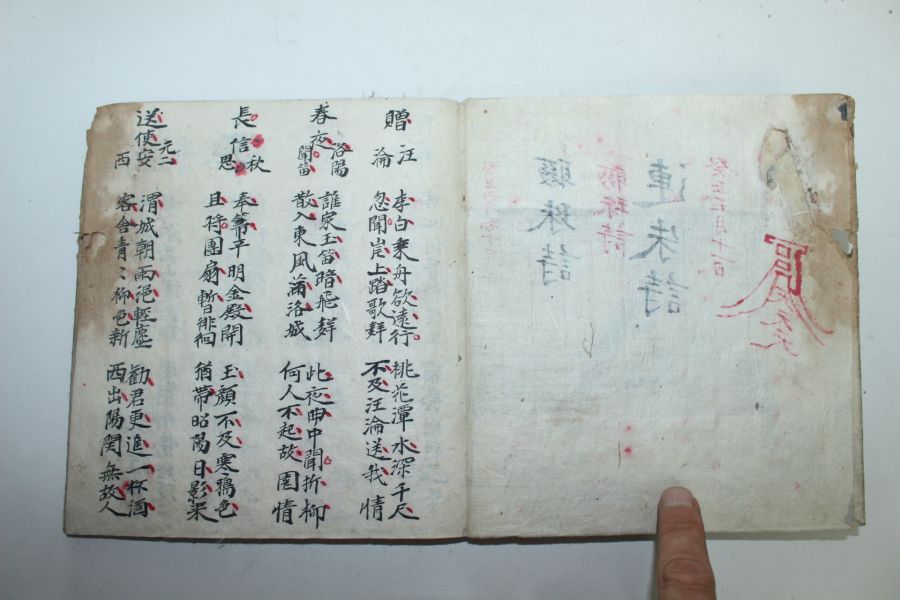 連朱詩
聯珠詩
贈汪淪
李白乘舟欲遠行
忽聞岸上踏歌聲
桃花潭水深千尺
不及汪淪送我情
春夜洛陽聞笛
誰家玉笛暗飛聲
散入東風滿洛城
此夜曲中聞折柳
何人不起故園情
長信秋思
奉箒平明金殿開
且將團扇暫徘徊
玉顔不及寒鴉色
猶帶昭陽日影来
送元二使安西
渭城朝雨浥輕塵
客舍青〻柳色新
勸君更進一杯酒
西出陽関無故人